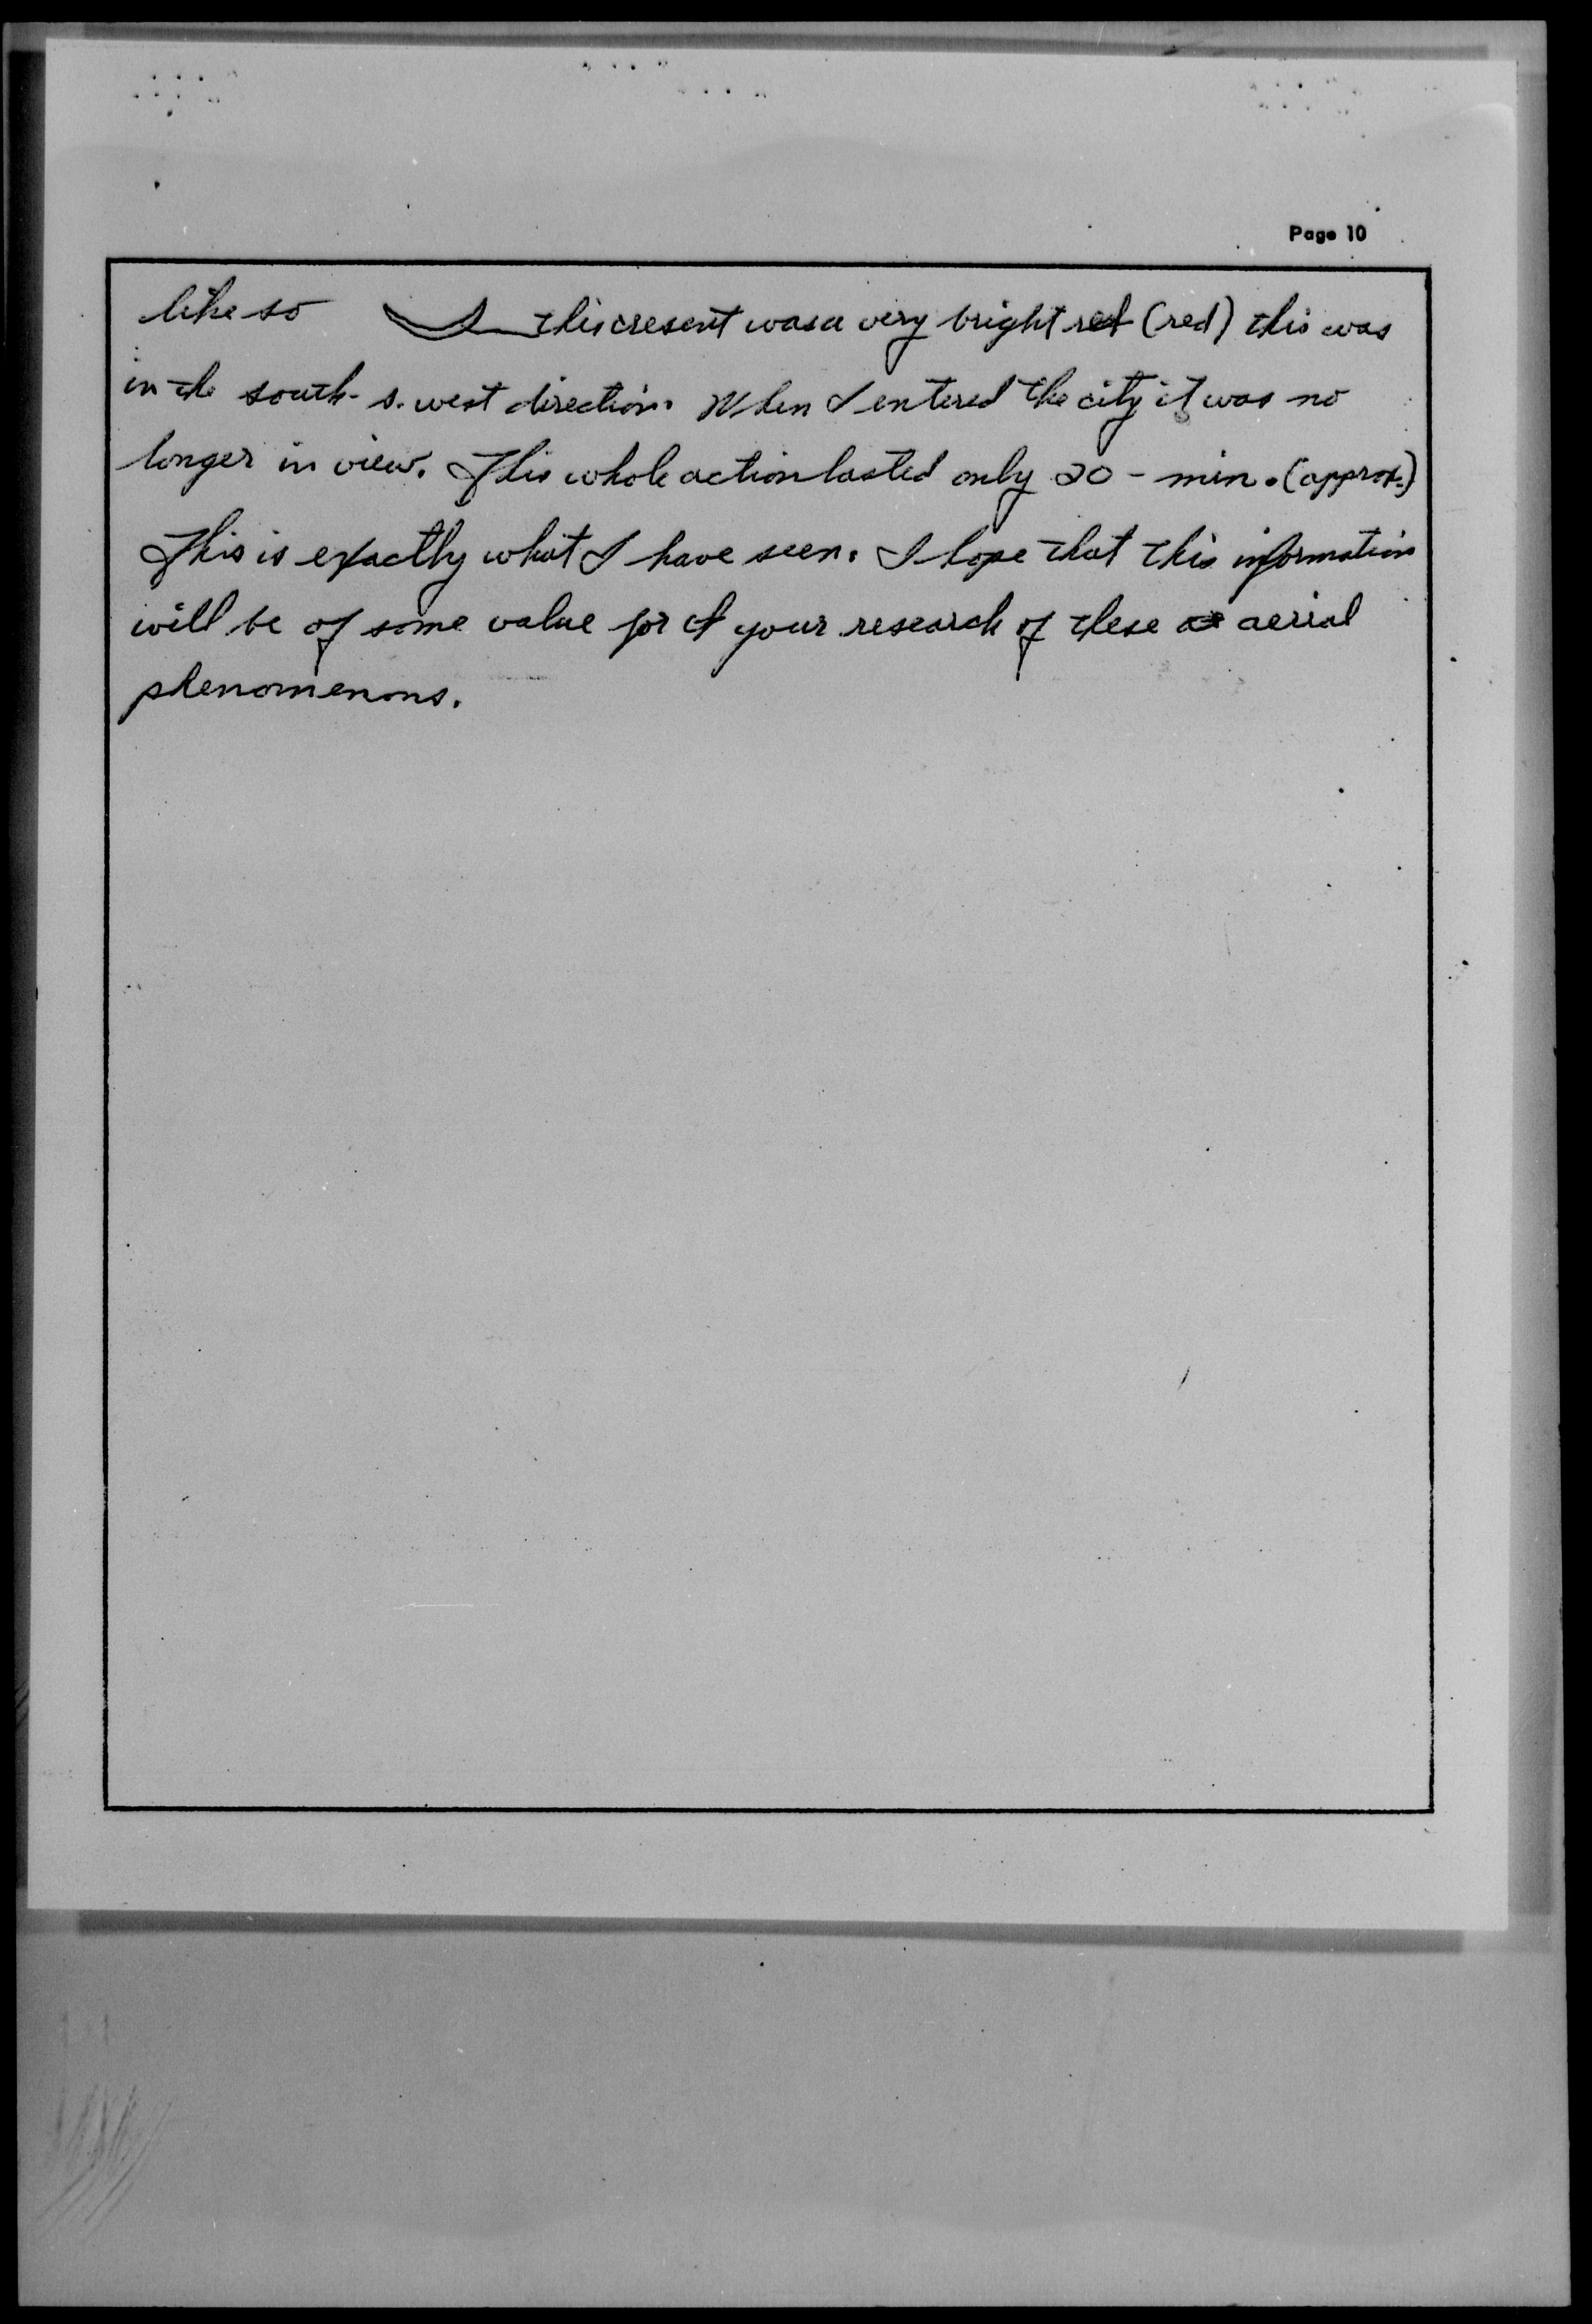 Page 10
like so this cresent was a very bright red (red) this was
in the south-s. west direction. When I entered the city it was no
longer in view. This whole action lasted only 20 - min. (approx.)
This is exactly what I have seen. I hope that this information
will be of some value for your research of these aerial
phenomenons.